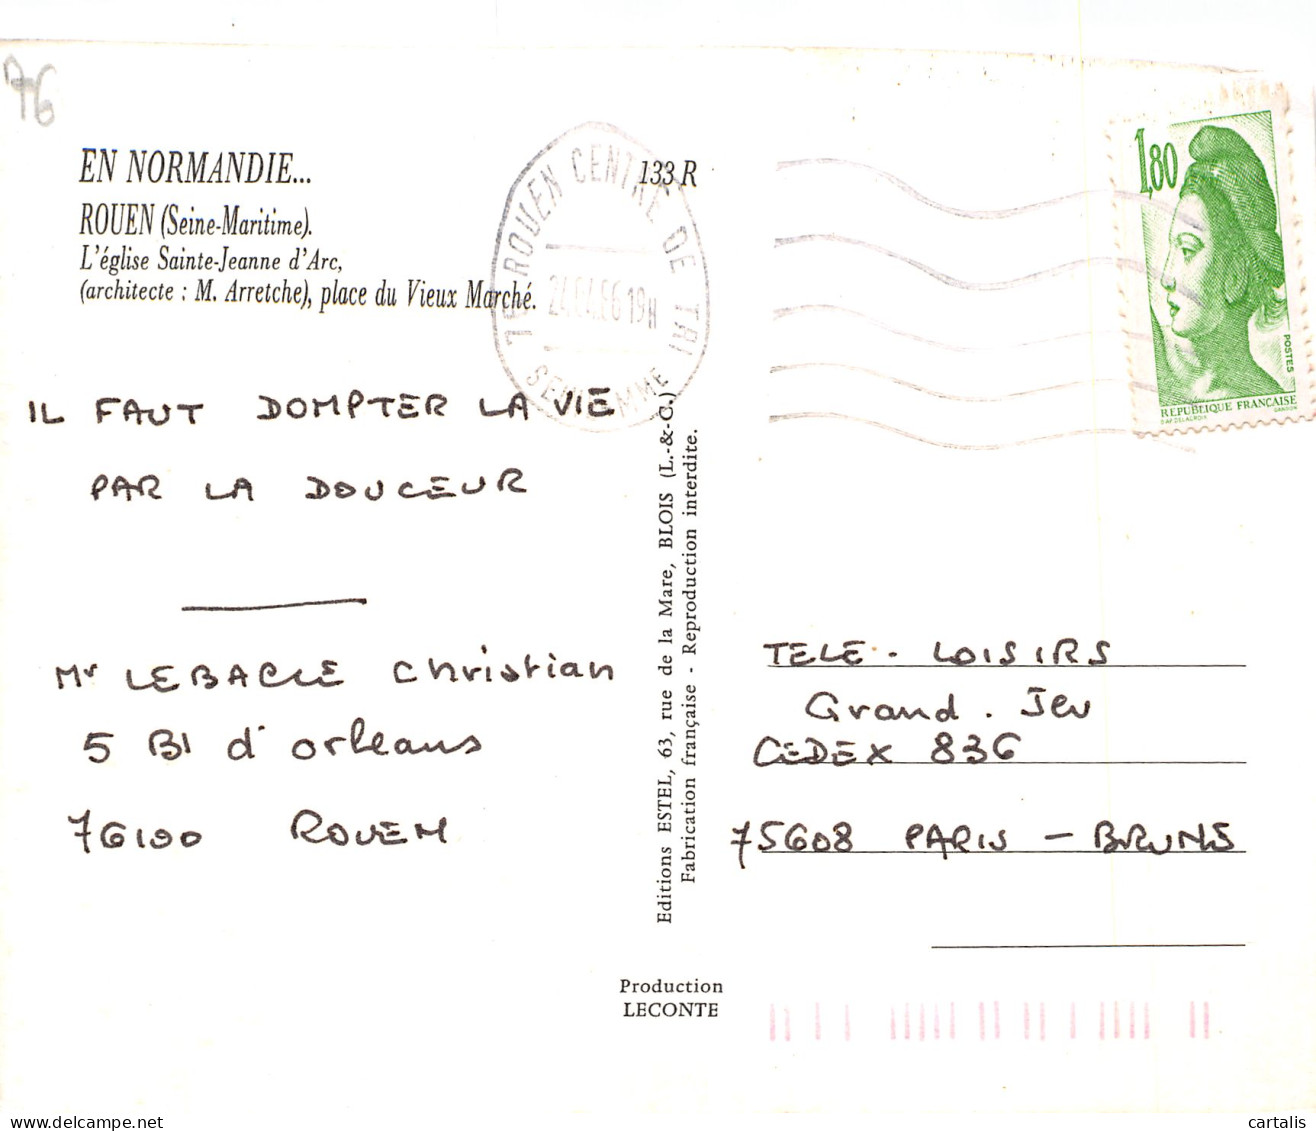 76
EN NORMANDIE...
133 R
ROUEN (Seine-Maritime).
L'église Sainte-Jeanne d'Arc,
(architecte : M. Arretche), place du Vieux Marché.
76 ROUEN CENTRE DE TRI
19H
1,80
POSTES
REPUBLIQUE FRANÇAISE
D'AP. DELACROIX
GANDON
IL FAUT DOMPTER LA VIE
PAR LA DOUCEUR
Mr LEBACLE Christian
5 Bl d'orleans
76100 ROUEN
Editions ESTEL, 63, rue de la Mare, BLOIS (L.-&-C.)
Fabrication française - Reproduction interdite.
TELE - LOISIRS
Grand. Jeu
CEDEX 836
75608 PARIS - BRUNE
Production
LECONTE
cartalis